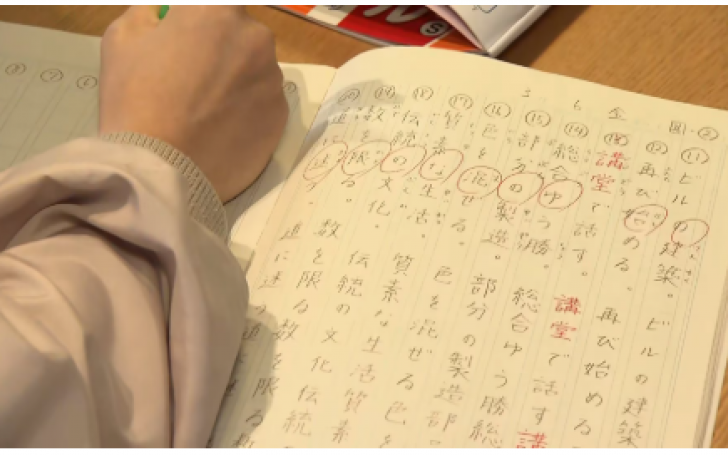 ⑪ビルの建築。ビルの建築
⑫再び始める。再び始める
⑬講堂で話す。講堂で話す講
⑭総合ゆう勝。総合ゆう勝総
⑮部分の製造。部分の製造部
⑯色を混ぜる。色を混ぜる色を
⑰質素な生活。質素な生活質素
⑱伝統の文化。伝統の文化伝統
⑲数を限る。数を限る数を限る
⑳道に迷う。道に迷う道に